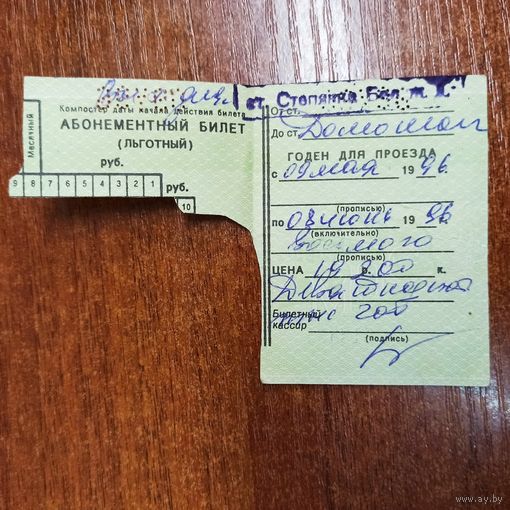 Компостер даты начала действия билета
АБОНЕМЕНТНЫЙ БИЛЕТ
(ЛЬГОТНЫЙ)
Месячный
руб.
9 8 7 6 5 4 3 2 1 руб.
10
От ст. ст. Степянка Бел. ж. д.
До ст.
ГОДЕН ДЛЯ ПРОЕЗДА
с 09 мая 1996
(прописью)
по 08 июнь 1996
(включительно)
восьмого
(прописью)
ЦЕНА 19200 р. к.
Билетный
кассир
(подпись)
www.ay.by